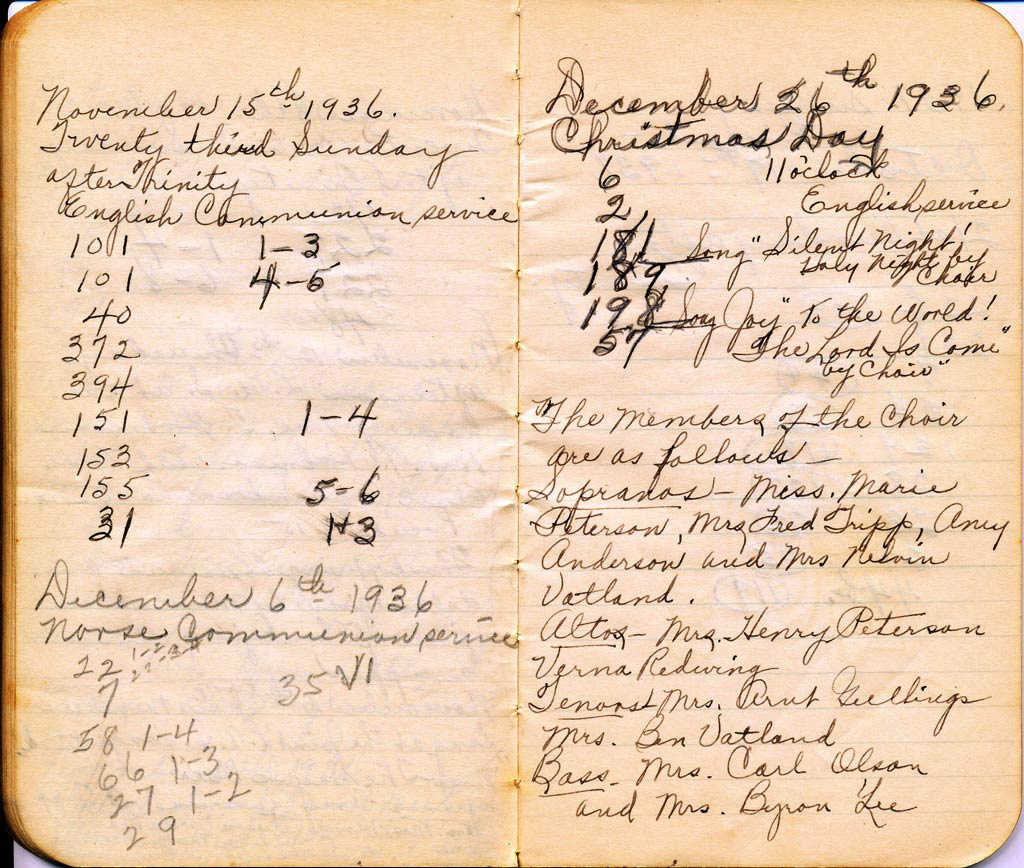 November 15th 1936.
Twenty third Sunday
after Trinity
English Communion service
101 1-3
101 4-5
40
372
394
151 1-4
153
155 5-6
31 1+3
December 6th 1936
Norse Communion service
22 1-2
7 35 V1
58 1-4
66 1-3
27 1-2
29
December 26th 1936.
Christmas Day
6 11 o'clock
2 English service
181 Song "Silent Night!
189 Holy Night" by Choir
198 Song Joy" to the World!
57 The Lord Is Come"
by Choir"
The Members of the Choir
are as follows —
Sopranos - Miss. Marie
Peterson, Mrs Fred Tripp, Amy
Anderson and Mrs Nelvin
Vatland.
Altos - Mrs. Henry Peterson
Verna Redwing
Tenors - Mrs. Arnt Gullings
Mrs. Ben Vatland
Bass - Mrs. Carl Olson
and Mrs. Byron Lee